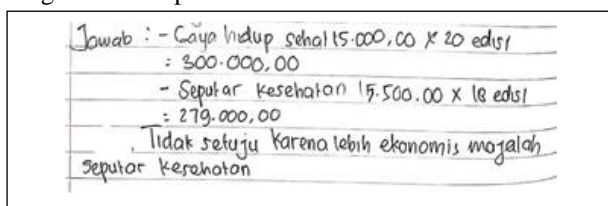 Jawab : - Gaya hidup sehat 15.000,00 x 20 edisi
: 300.000,00
- Seputar kesehatan 15.500.00 x 18 edisi
: 279.000,00
Tidak setuju karena lebih ekonomis majalah
seputar kesehatan